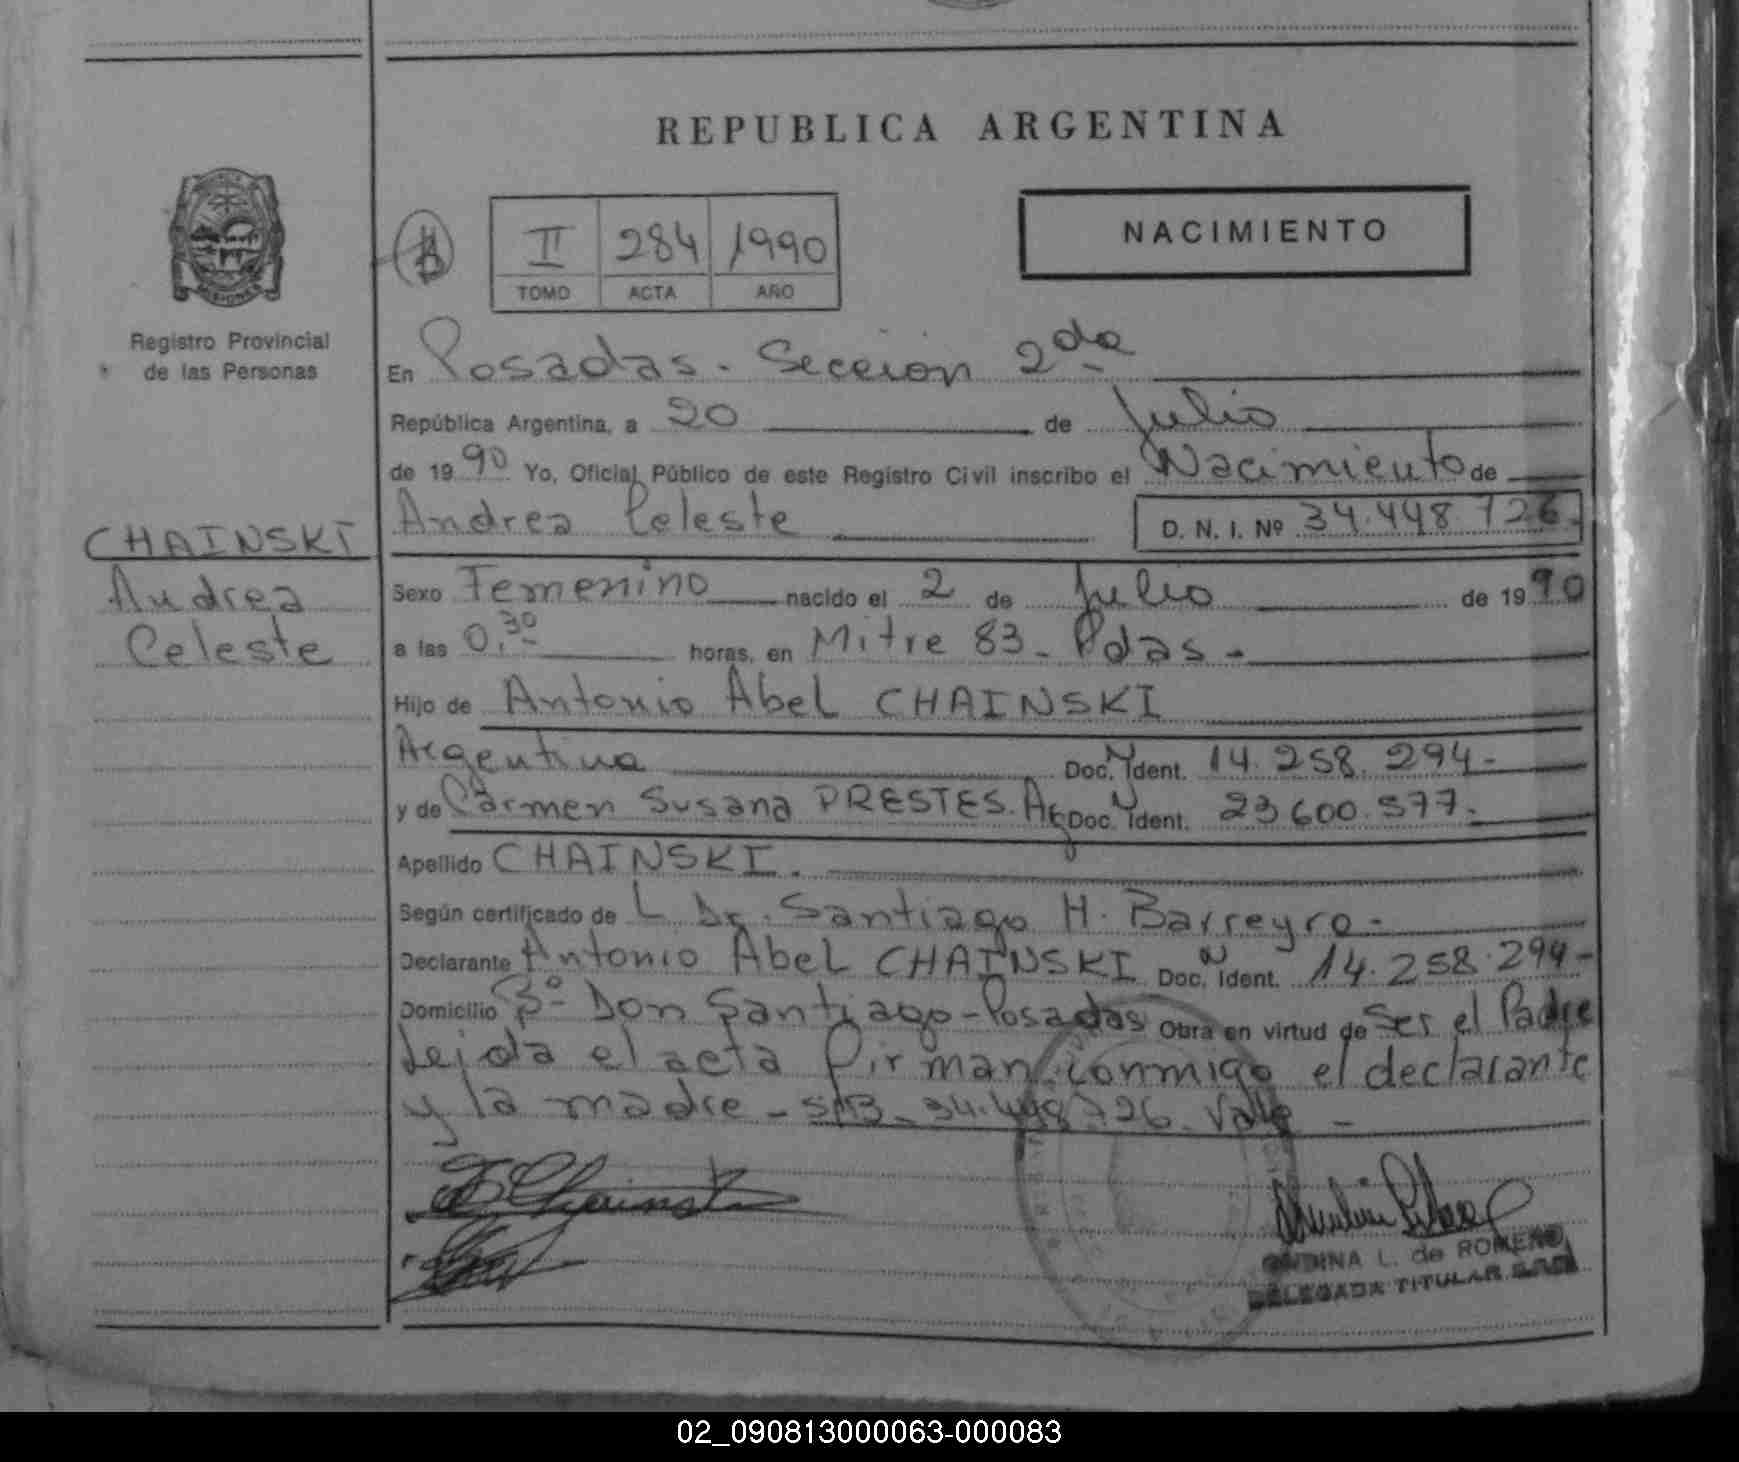 REPUBLICA ARGENTINA
MISIONES
Registro Provincial
de las Personas
II 284 1990
TOMO ACTA AÑO
NACIMIENTO
En Posadas - Sección 2da
República Argentina, a 20 de Julio
de 1990 Yo, Oficial Público de este Registro Civil inscribo el Nacimiento de
Andrea Celeste D. N. I. Nº 34.448.726.
CHAINSKI
Andrea
Celeste
Sexo Femenino nacido el 2 de Julio de 1990
a las 0,30 horas, en Mitre 83 - Pdas -
Hijo de Antonio Abel CHAINSKI
Argentina Doc. N Ident. 14.258.294-
y de Carmen Susana PRESTES. Arg Doc. N Ident. 23.600.577-
Apellido CHAINSKI.
Según certificado de L Dr. Santiago H. Barreyro -
Declarante Antonio Abel CHAINSKI Doc. N Ident. 14.258.294-
Domicilio Bº Don Santiago - Posadas Obra en virtud de Ser el Padre
Leida el acta firman conmigo el declarante
y la madre - S/B - 34.448.726. Vale -
A Chainski
ONDINA L. de ROMERO
DELEGADA TITULAR
02_090813000063-000083